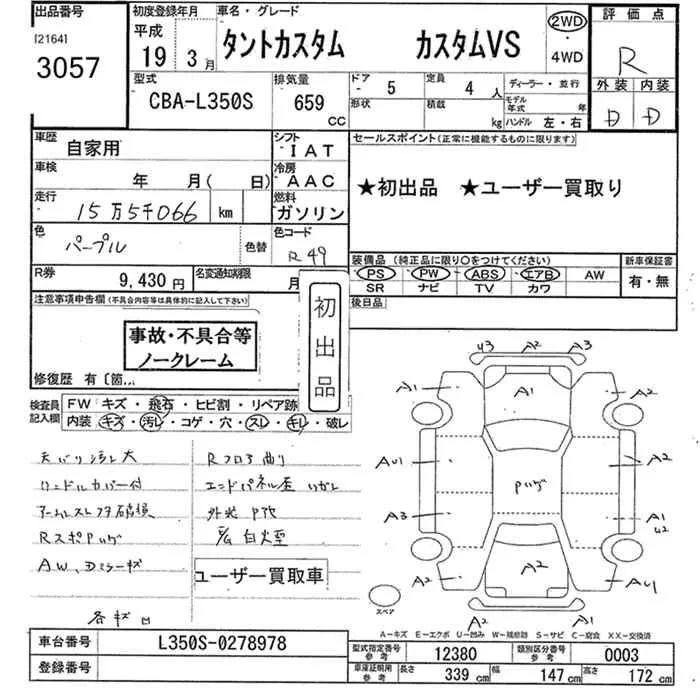 出品番号 初度登録年月 車名・グレード 評価点
[2164] 平成 タントカスタム カスタムVS 2WD・4WD R
3057 19年 3月
型式 排気量 ドア 5 定員 4人 ディーラー・並行 外装 内装
CBA-L350S 659 CC 形状 積載 kg モデル年式 年 ハンドル 左・右 D D
車歴 自家用 シフト IAT セールスポイント(正常に機能するものに限ります)
車検 年 月( 日) 冷房 AAC ★初出品 ★ユーザー買取り
走行 15万5千066 km 燃料 ガソリン
色 パープル 色替 色コード R49
装備品(純正品に限り○をつけてください) 新車保証書
R券 9,430円 名変通知期限 月 PS PW ABS エアB AW 有・無
SR ナビ TV カワ
注意事項申告欄(不具合内容等は具体的に記入して下さい) 初出品 後日品
事故・不具合等
ノークレーム
修復歴 有〔箇
検査員記入欄 FW キズ・飛石・ヒビ割・リペア跡
内装 キズ・汚レ・コゲ・穴・スレ・キレ・破レ
天バリ汚レ大 Rフロア曲り
ハンドルカバー付 エンドパネル歪
アームレストフタ破損 外装
AW、Dミラーキズ
ユーザー買取車
各キズ凹
U3 A2 A3
A1 A1 A2
AU1 Pルーフ A2
A3 A1 U2
A2 A2 AU1
スペア A2 A1
A-キズ E-エクボ U-凹み W-補修跡 S-サビ C-腐食 XX-交換済
車台番号 L350S-0278978 型式指定番号 参考 12380 類別区分番号 参考 0003
登録番号 車庫証明用 参考 長さ 339 cm 幅 147 cm 高さ 172 cm